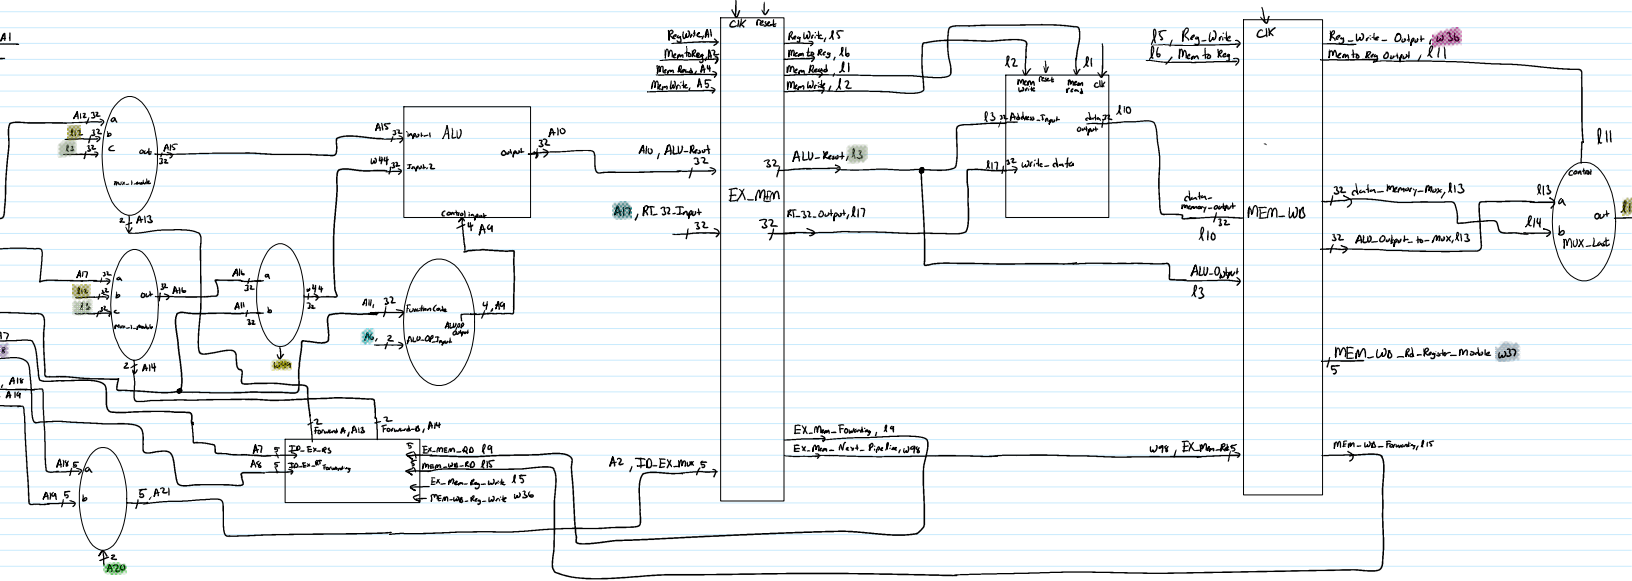 A1
A12, 32
a
l12
32
b
l3
32
c
out
A15
32
mux_1_module
2
A13
A17
32
a
l12
32
b
l3
32
c
out
32
A16
mux_1_module
2
A14
A16
32
a
A11
32
b
w44
32
A15
32
input_1
ALU
w44
32
Input2
Output
32
A10
Control input
4
A9
A11,
32
Function Code
A6,
2
ALU_OP_Input
ALUOP Output
4, A9
A18
A19
A18, 5
a
A19, 5
b
5, A21
2
A20
2
Forward A, A13
2
Forward-B, A14
A7
5
ID_Ex_RS
A8
5
ID_Ex_RT
Forwarding
5
EX_MEM_RD l9
MEM_WB_RD l15
Ex_Mem_Reg_Write l5
MEM_WB_Reg_Write w36
CLK
reset
RegWrite, A1
MemtoReg, A2
Mem Read, A4
MemWrite, A5
A10, ALU_Result
32
A17, RT_32_Input
32
A2, ID_EX_Mux, 5
EX_MEM
RegWrite, l5
Memto Reg, l6
Mem Read, l1
MemWrite, l2
32
ALU_Result, l3
32
RT_32_Output, l17
Ex_Mem_Fowarding, l9
Ex_Mem_Next_Pipeline, w98
l2
reset
l1
mem write
mem read
clk
l3
32
Address_Input
data output
32
l10
l17
32
Write_data
l5, Reg_Write
l6, Mem to Reg
data_memory_output
32
l10
ALU_Output
l3
w98, EX_Mem_Rd 5
CLK
MEM_WB
Reg_Write_Output, w36
Memto Reg Output, l11
32
data_memory_Mux, l13
32
ALU_Output_to_Mux, l13
MEM_WB_Rd_Register_Module w37
5
MEM_WB_Forwarding, l15
l11
control
l13
a
l14
b
out
MUX_Last